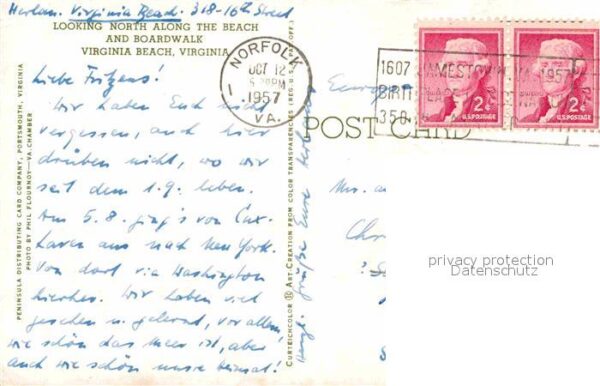 Herham. Virginia Beach. 318-16th Street
LOOKING NORTH ALONG THE BEACH
AND BOARDWALK
VIRGINIA BEACH, VIRGINIA
Liebe Fritzens!
Wir haben Euch nicht
vergessen, auch hier
drüben nicht, wo wir
seit dem 1.9. leben.
Am 5.8. ging's von Cux-
haven aus nach New York.
Von dort via Washington
hierher. Wir haben viel
gesehen u. gelernt, vor allem
wie schön das Meer ist, aber
auch wie schön unsre Heimat!
Herzl. grüße Eure
PENINSULA DISTRIBUTING CARD COMPANY, PORTSMOUTH, VIRGINIA
PHOTO BY PHIL FLOURNOY—VA. CHAMBER
CURTEICHCOLOR ART CREATION FROM COLOR TRANSPARENCIES (REG. U.S.A. PAT. OFF.)
NORFOLK
OCT 12
1957
VA.
1607 JAMESTOWN VA. 1957
350
2¢ 2¢
U.S. POSTAGE U.S. POSTAGE
POST CARD
Mrs.
privacy protection
Datenschutz